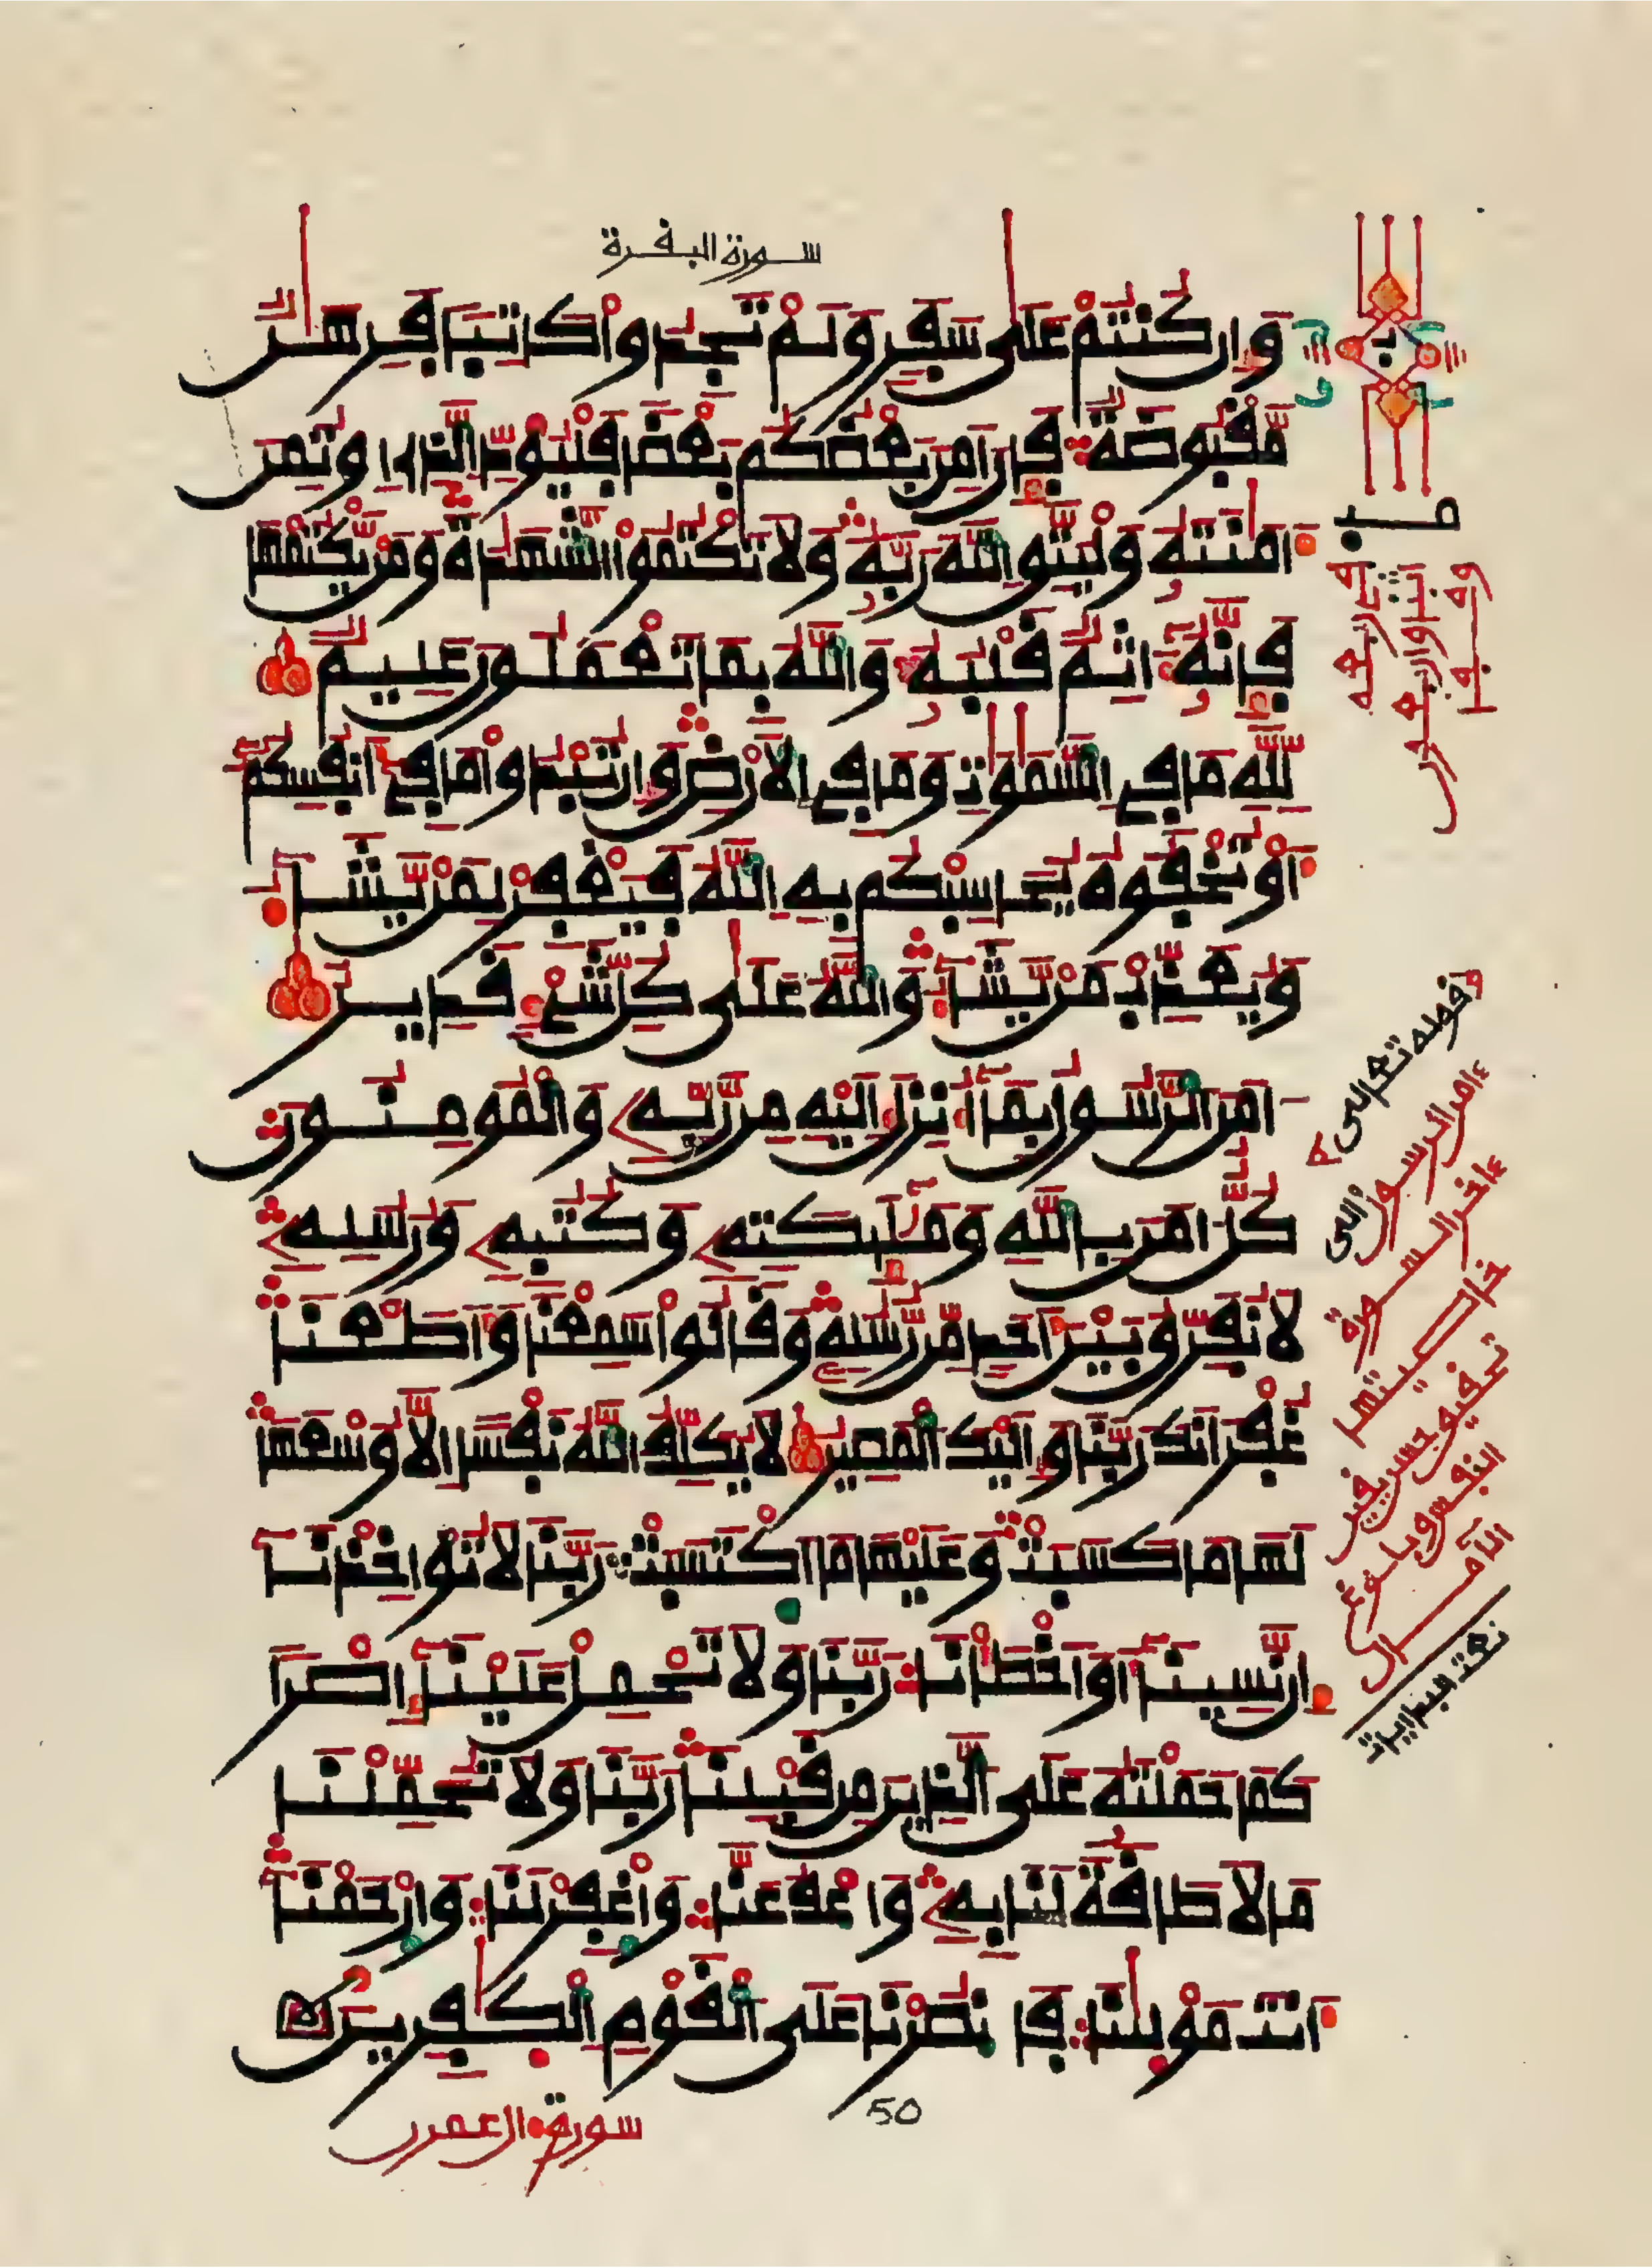 سورة البقرة
وَإِن كُنتُمْ عَلَىٰ سَفَرٍ وَلَمْ تَجِدُوا۟ كَاتِبًا فَرِهَٰنٌ
مَّقْبُوضَةٌ فَإِنْ أَمِنَ بَعْضُكُم بَعْضًا فَلْيُؤَدِّ الَّذِي اؤْتُمِنَ
أَمَٰنَتَهُۥ وَلْيَتَّقِ اللَّهَ رَبَّهُۥ وَلَا تَكْتُمُوا۟ الشَّهَٰدَةَ وَمَنْ يَّكْتُمْهَا
فَإِنَّهُۥ ءَاثِمٌ قَلْبُهُۥ وَاللَّهُ بِمَا تَعْمَلُونَ عَلِيمٌ
لِّلَّهِ مَا فِي السَّمَٰوَٰتِ وَمَا فِي الْأَرْضِ وَإِن تُبْدُوا۟ مَا فِي أَنفُسِكُمْ
أَوْ تُخْفُوهُ يُحَاسِبْكُم بِهِ اللَّهُ فَيَغْفِرْ لِمَنْ يَّشَاءُ
وَيُعَذِّبْ مَنْ يَّشَاءُ وَاللَّهُ عَلَىٰ كُلِّ شَيْءٍ قَدِيرٌ
ءَامَنَ الرَّسُولُ بِمَا أُنزِلَ إِلَيْهِ مِن رَّبِّهِۦ وَالْمُومِنُونَ
كُلٌّ ءَامَنَ بِاللَّهِ وَمَلَٰٓئِكَتِهِۦ وَكُتُبِهِۦ وَرُسُلِهِۦ
لَا نُفَرِّقُ بَيْنَ أَحَدٍ مِّن رُّسُلِهِۦ وَقَالُوا۟ سَمِعْنَا وَأَطَعْنَا
غُفْرَانَكَ رَبَّنَا وَإِلَيْكَ الْمَصِيرُ لَا يُكَلِّفُ اللَّهُ نَفْسًا إِلَّا وُسْعَهَا
لَهَا مَا كَسَبَتْ وَعَلَيْهَا مَا اكْتَسَبَتْ رَبَّنَا لَا تُؤَاخِذْنَا
إِن نَّسِينَا أَوْ أَخْطَأْنَا رَبَّنَا وَلَا تَحْمِلْ عَلَيْنَا إِصْرًا
كَمَا حَمَلْتَهُۥ عَلَى الَّذِينَ مِن قَبْلِنَا رَبَّنَا وَلَا تُحَمِّلْنَا
مَا لَا طَاقَةَ لَنَا بِهِۦ وَاعْفُ عَنَّا وَاغْفِرْ لَنَا وَارْحَمْنَا
أَنتَ مَوْلَىٰنَا فَانصُرْنَا عَلَى الْقَوْمِ الْكَٰفِرِينَ
50
سورة ءال عمرن
وقوله تعالى
ءامن الرسول إلى
ءاخر السورة